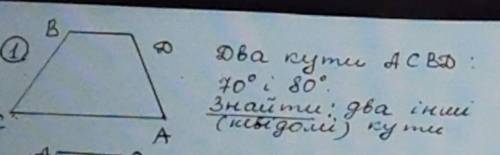 B
① D
Два кути ACBD:
70° і 80°.
Знайти: два інші
(невідомі) кути
A